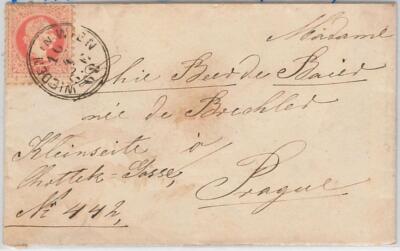 WIEDEN IN WIEN
Madame
Sophie Beer de Baier
née de Brechler
Kleinseite à
Chottek-Gasse, Prague
№ 442,